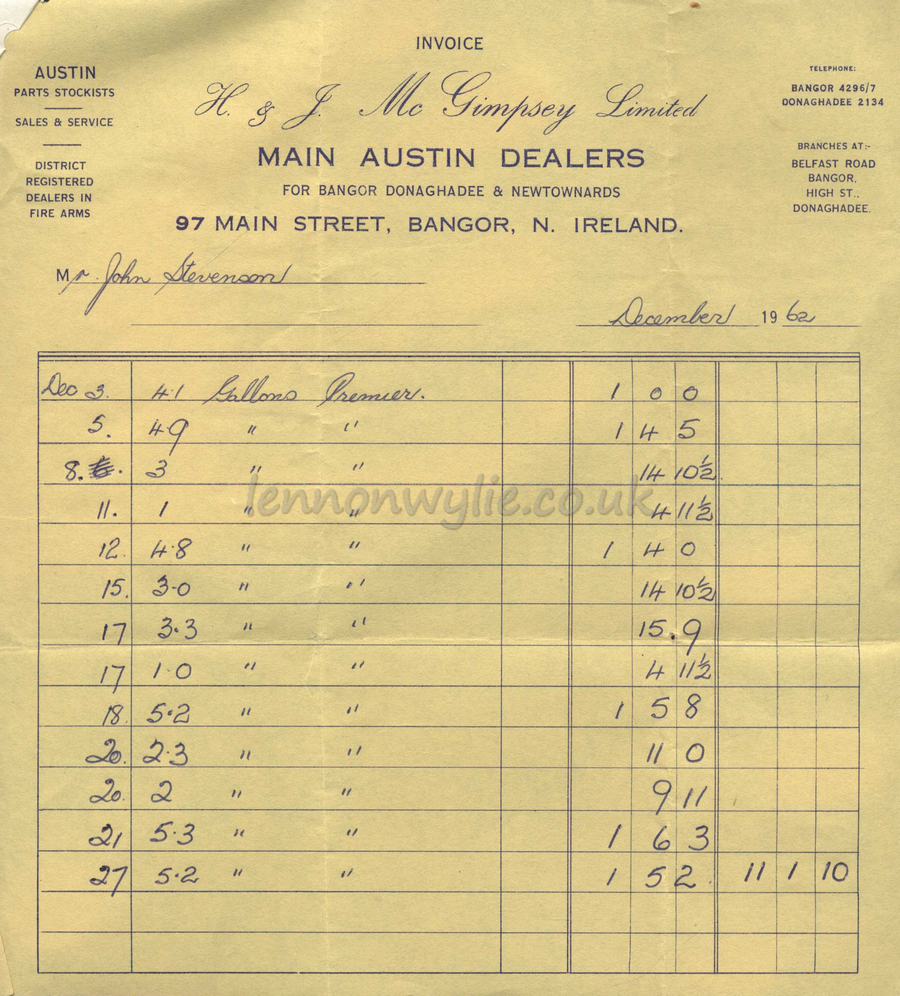 INVOICE
AUSTIN
PARTS STOCKISTS
SALES & SERVICE
DISTRICT
REGISTERED
DEALERS IN
FIRE ARMS
H. & J. McGimpsey Limited
MAIN AUSTIN DEALERS
FOR BANGOR DONAGHADEE & NEWTOWNARDS
97 MAIN STREET, BANGOR, N. IRELAND.
TELEPHONE:
BANGOR 4296/7
DONAGHADEE 2134
BRANCHES AT:-
BELFAST ROAD
BANGOR.
HIGH ST.,
DONAGHADEE.
Mr. John Stevenson
December 1962
Dec 3. 4.1 Gallons Premier. 1 0 0
5. 4.9 " " 1 4 5
8. 3 " " 14 10½
11. 1 " " 4 11½
12. 4.8 " " 1 4 0
15. 3.0 " " 14 10½
17 3.3 " " 15.9
17 1.0 " " 4 11½
18. 5.2 " " 1 5 8
20. 2.3 " " 11 0
20. 2 " " 9 11
21 5.3 " " 1 6 3
27 5.2 " " 1 5 2. 11 1 10
lennonwylie.co.uk